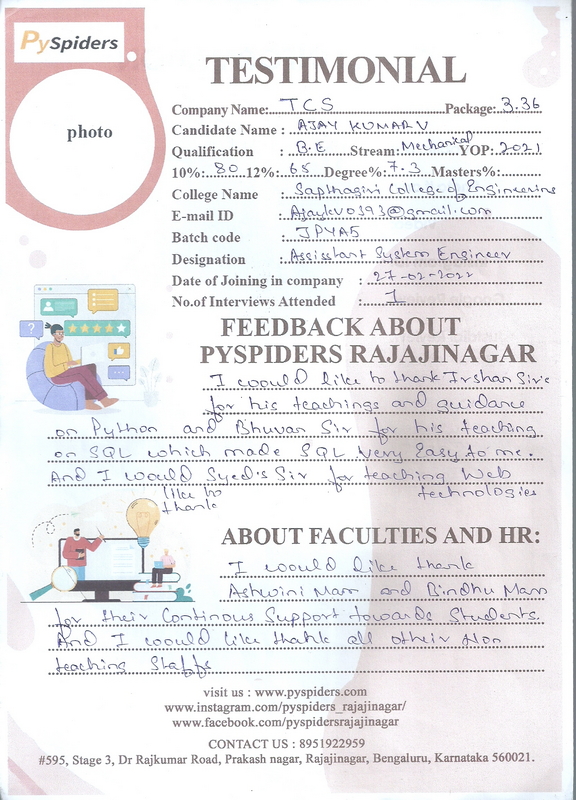 PySpiders
photo
TESTIMONIAL
Company Name: TCS Package: 3.36
Candidate Name : AJAY KUMAR V
Qualification : B.E Stream: Mechanical YOP: 2021
10%: 80 12%: 65 Degree%: 7.3 Masters%:
College Name : Sapthagiri College of Engineering
E-mail ID : Ajaykv0393@gmail.com
Batch code : JPYA5
Designation : Assisstant System Engineer
Date of Joining in company : 27-02-2022
No.of Interviews Attended : 1
FEEDBACK ABOUT
PYSPIDERS RAJAJINAGAR
I would like to thank Irshan Sir's
for his teachings and guidance
on Python and Bhuvan Sir for his teaching
on SQL which made SQL Very Easy to me.
And I would like to thank Syed's Sir for teaching Web
technologies
ABOUT FACULTIES AND HR:
I would like thank
Ashwini Mam and Bindhu Mam
for their Continous Support towards Students.
And I would like thank all other Non
teaching Staffs
visit us : www.pyspiders.com
www.instagram.com/pyspiders_rajajinagar/
www.facebook.com/pyspidersrajajinagar
CONTACT US : 8951922959
#595, Stage 3, Dr Rajkumar Road, Prakash nagar, Rajajinagar, Bengaluru, Karnataka 560021.